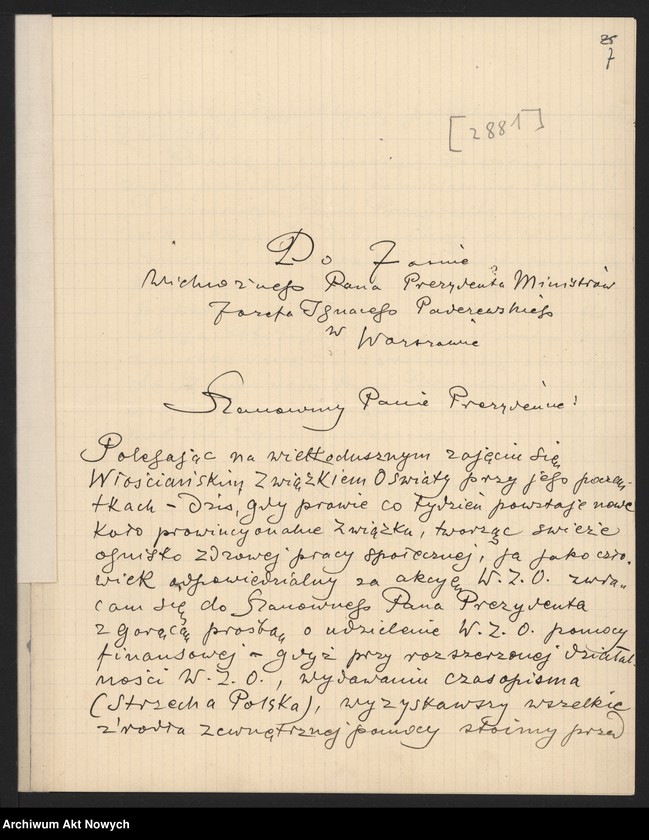 7
[2881]
Do
Wielmożnego Pana Prezydenta Ministrów
Józefa Ignacego Paderewskiego
w Warszawie
Szanowny Panie Prezydencie!
Polegając na wielkodusznym zajęciu się
Włościańskim Związkiem Oświaty przy jego począ-
tkach – dziś, gdy prawie co tydzień powstaje nowe
koło prowincyonalne Związku, tworząc świeże
ognisko zdrowej pracy społecznej, ja jako czło-
wiek odpowiedzialny za akcyę W. Z. O. zwra-
cam się do Szanownego Pana Prezydenta
z gorącą prośbą o udzielenie W. Z. O. pomocy
finansowej – gdyż przy rozszerzonej działal-
ności W. Z. O., wydawaniu czasopisma
(Strzecha Polska), wyzyskawszy wszelkie
źródła zewnętrznej pomocy stoimy przed
Archiwum Akt Nowych